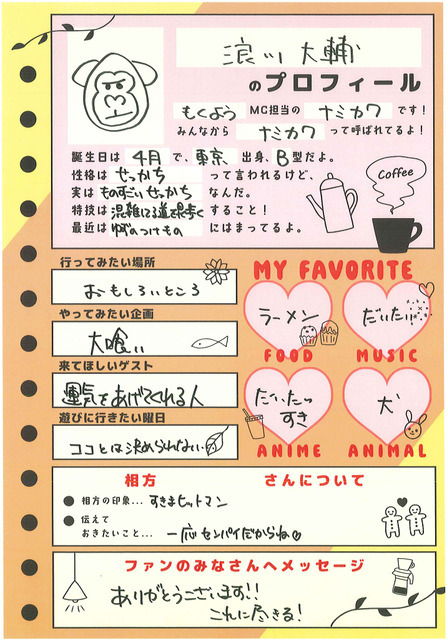 浪川 大輔
のプロフィール
もくよう MC担当の ナミカワ です!
みんなから ナミカワ って呼ばれてるよ!
誕生日は 4月 で、東京 出身、B型だよ。
性格は せっかち って言われるけど、
実は ものすごいせっかち なんだ。
特技は 混雑してる道を早歩く すること!
最近は ゆずのつけもの にはまってるよ。
Coffee
行ってみたい場所
おもしろいところ
やってみたい企画
大喰い
来てほしいゲスト
運気をあげてくれる人
遊びに行きたい曜日
ココとは決められない
MY FAVORITE
ラーメン
FOOD
だいたい
MUSIC
だいたい
すき
ANIME
犬
ANIMAL
相方 さんについて
相方の印象… すきまヒットマン
伝えて
おきたいこと… 一応センパイだからね
ファンのみなさんへメッセージ
ありがとうございます!!
これに尽きる!